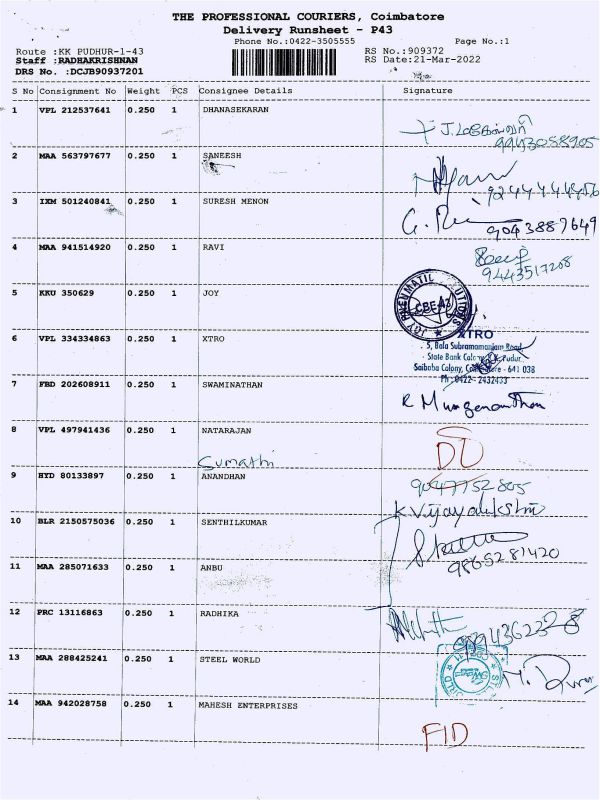 THE PROFESSIONAL COURIERS, Coimbatore
Delivery Runsheet - P43
Phone No.:0422-3505555 Page No.:1
Route :KK PUDHUR-1-43 RS No.:909372
Staff :RADHAKRISHNAN RS Date:21-Mar-2022
DRS No. :DCJB90937201
S No Consignment No Weight PCS Consignee Details Signature
1 VPL 212537641 0.250 1 DHANASEKARAN
9943058905
2 MAA 563797677 0.250 1 SANEESH
3 IXM 501240841 0.250 1 SURESH MENON
9043887649
4 MAA 941514920 0.250 1 RAVI
9443517208
5 KKU 350629 0.250 1 JOY
CBE 43
6 VPL 334334863 0.250 1 XTRO
XTRO
5, Bala Subramamaniam Road
State Bank Colony, Pudur
Saibaba Colony, - 641 038
Ph : 0422- 2432433
7 FBD 202608911 0.250 1 SWAMINATHAN
8 VPL 497941436 0.250 1 NATARAJAN
DL
Sumathi
9 HYD 80133897 0.250 1 ANANDHAN
9047752805
K Vijayalakshmi
10 BLR 2150575036 0.250 1 SENTHILKUMAR
9865281420
11 MAA 285071633 0.250 1 ANBU
12 PRC 13116863 0.250 1 RADHIKA
13 MAA 288425241 0.250 1 STEEL WORLD
14 MAA 942028758 0.250 1 MAHESH ENTERPRISES
FID